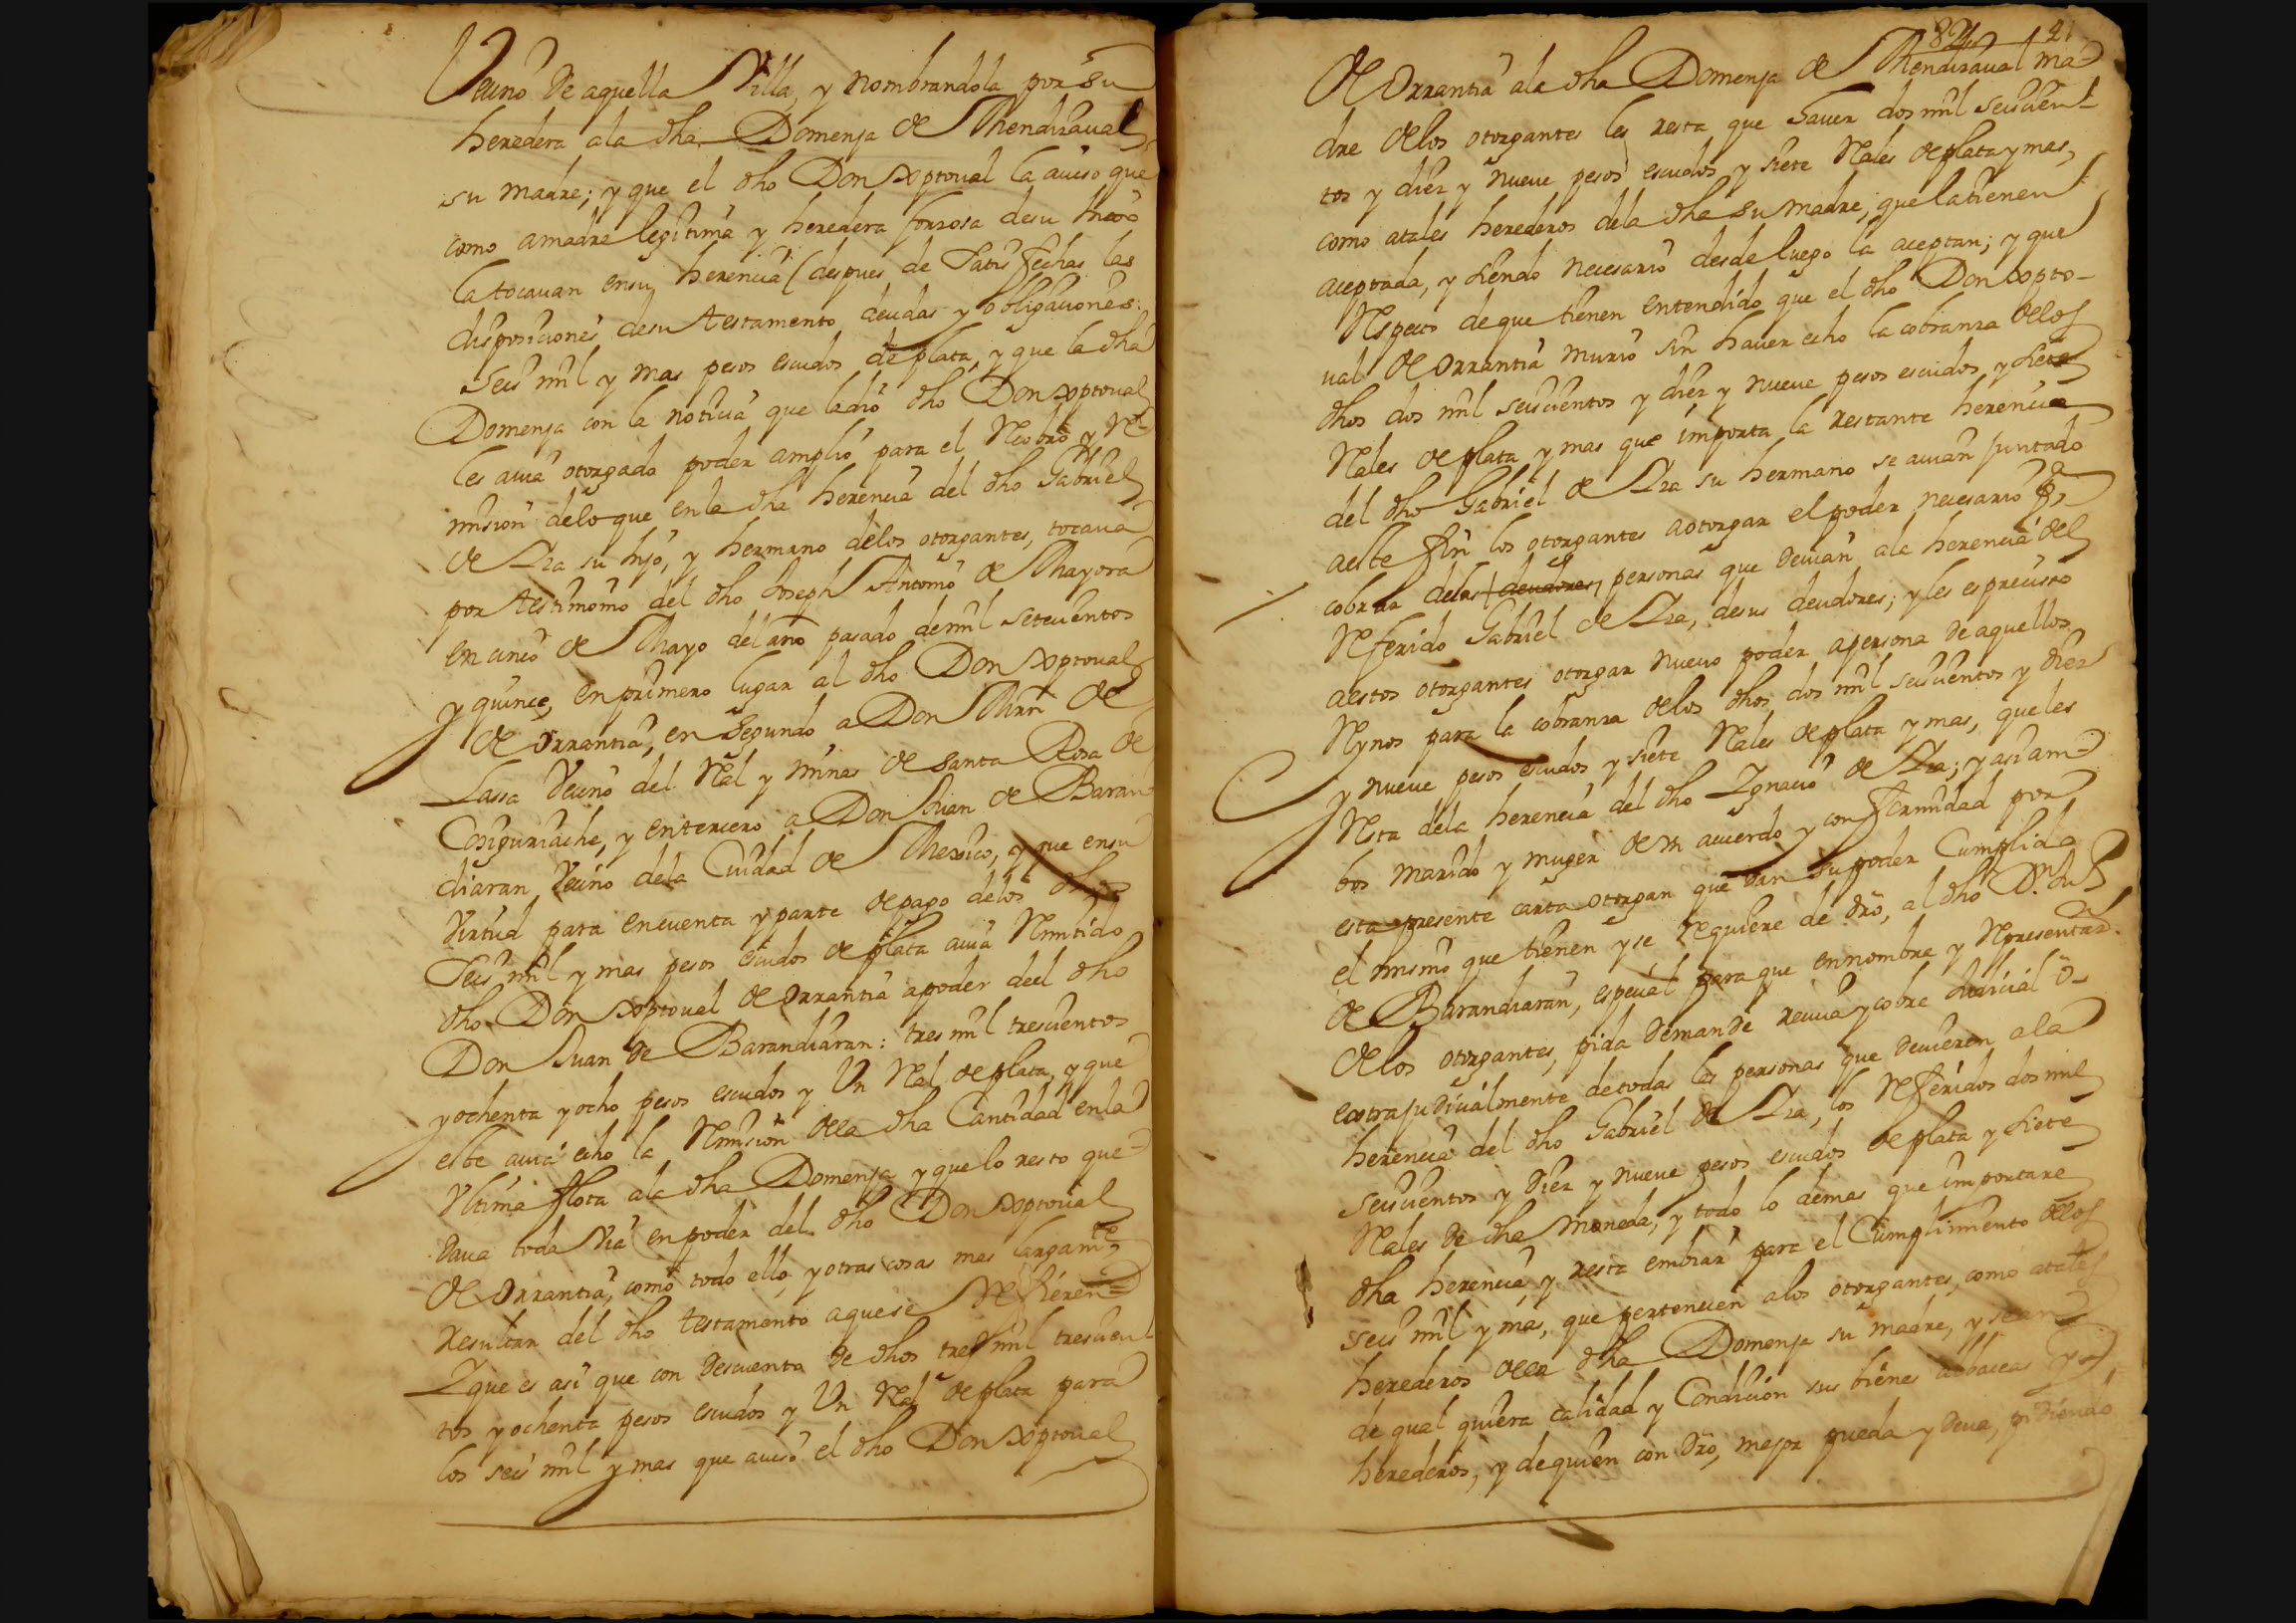 Vecino de aquella Villa, y nombrandola por su
heredera ala dha Domenja de Mendizaual
su madre; y que el dho Don Xptoual la auiso que
como amadre legitima y heredera forzosa desu
la tocauan ensu herencia (despues de Satisfechas las
disposiciones desu testamento deudas y obligaciones:
Seis mil y mas pesos escudos de plata, y que la dha
Domenja con la noticia que ladio dho Don Xptoual
les auia otorgado poder amplio para el Recobro y Re-
mision delo que enla dha herencia del dho Gabriel
de Lza su hijo, y hermano delos otorgantes, tocaua
por testimonio del dho Joseph Antonio de Mayora
en cinco de Mayo del año pasado demil setecientos
y quince, enprimero lugar al dho Don Xptoual
de Orrantia, en Segundo a Don Mrñ de
Lassa Vecino del Rеal y minas de Santa Rosa de
Cosiguriachi, y entercero a Don Juan de Baran
diaran Vecino dela Ciudad de Mexico, y que ensu
Virtud para encuenta yparte depago delos dhos
Seis mil y mas pesos escudos de plata auia Remitido
dho Don Xptoual de Orrantia apoder deel dho
Don Juan de Barandiaran: tres mil trescientos
yochenta yocho pesos escudos y Un Rеal de plata, y que
este auia echo la Remision dela dha Cantidad enla
Vltima flota ala dha Domenja yquelo resto que-
daua toda Via enpoder del dho Don Xptoual
de Orrantia, como todo ello, yotras cosas mas largamte
resultan del dho testamento aquese Refieren=
Yque es asi que con descuento de dhos tres mil trescien
tos yochenta pesos escudos y Un Rеal de plata para
los seis mil y mas que auiso el dho Don Xptoual
82 41
de Orrantia ala dha Domenja de Mendizaual ma-
dre delos otorgantes les resta que hauer dos mil seiscien-
tos y diez y nueve pesos escudos, y siete Reales deplata ymas,
como atales herederos dela dha su madre, que latienen
aceptada, y siendo necesario desde luego la aceptan; y que
Respecto deque tienen entendido que el dho Don Xpto-
ual de Orrantia murio sin hauer echo la cobranza delos
dhos dos mil seiscientos y diez y nueve pesos escudos, y siete
Reales de plata ymas que importa la restante herencia
del dho Gabriel de Lza su hermano se auian juntado
aeste fin los otorgantes aotorgar el poder necesario pa
cobrar delas personas que deuian ala herencia del
Referido Gabriel de Lza, desus deudores; yles espreciso
aestos otorgantes otorgar nueuo poder apersona de aquellos
Rynos para la cobranza delos dhos dos mil seiscientos y diez
y nueve pesos escudos y siete Reales de plata y mas, queles
Resta dela herencia del dho Ygnacio de Lza; y asi am=
bos marido y muger de vn acuerdo y conformidad por
esta presente carta otorgan que dan su poder Cumplido
el mismo que tienen yse requiere de dro, al dho Dn. Jun
de Barandiaran, especial para que ennombre y Representaz.on
delos otorgantes, pida demande reciua y cobre Judicial o-
extrajudicialmente detodas las personas que deuieren ala
herencia del dho Gabriel de Lza, los Referidos dos mil
seiscientos y diez y nueve pesos escudos de plata y siete
Reales de dha moneda, y todo lo demas que importare
dha herencia, y resta embiar para el Cumplimiento delos
seis mil y mas, que pertenecen alos otorgantes, como atales
herederos dela dha Domenja su madre, y sean
de qual quiera calidad y Condicion sus bienes albaceas y
herederos, y dequien con dro, mejor pueda y deua, pidiendo